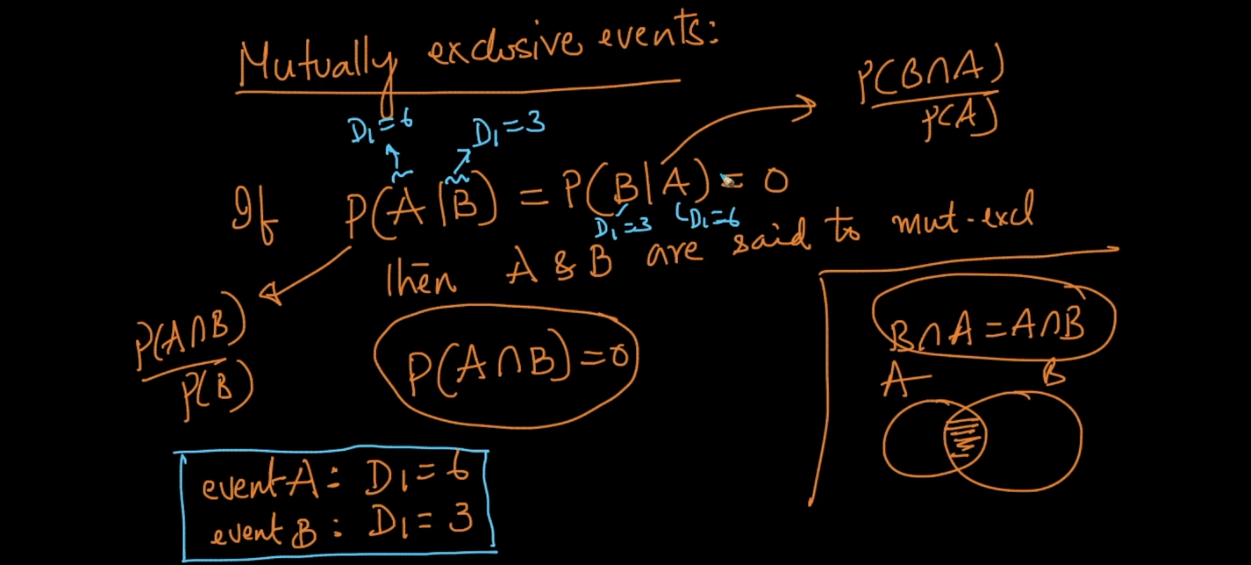 Mutually exclusive events:
P(B∩A)
P(A)
D₁=6
D₁=3
If P(A|B) = P(B|A) = 0
D₁=3
D₁=6
then A & B are said to mut-excl
P(A∩B)
P(B)
P(A∩B)=0
B∩A=A∩B
A B
event A: D₁=6
event B: D₁=3